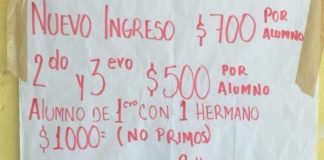 NUEVO INGRESO $700 POR ALUMNO
2do y 3evo $500 POR ALUMNO
ALUMNO DE 1evo CON 1 HERMANO
$1000= (NO PRIMOS)